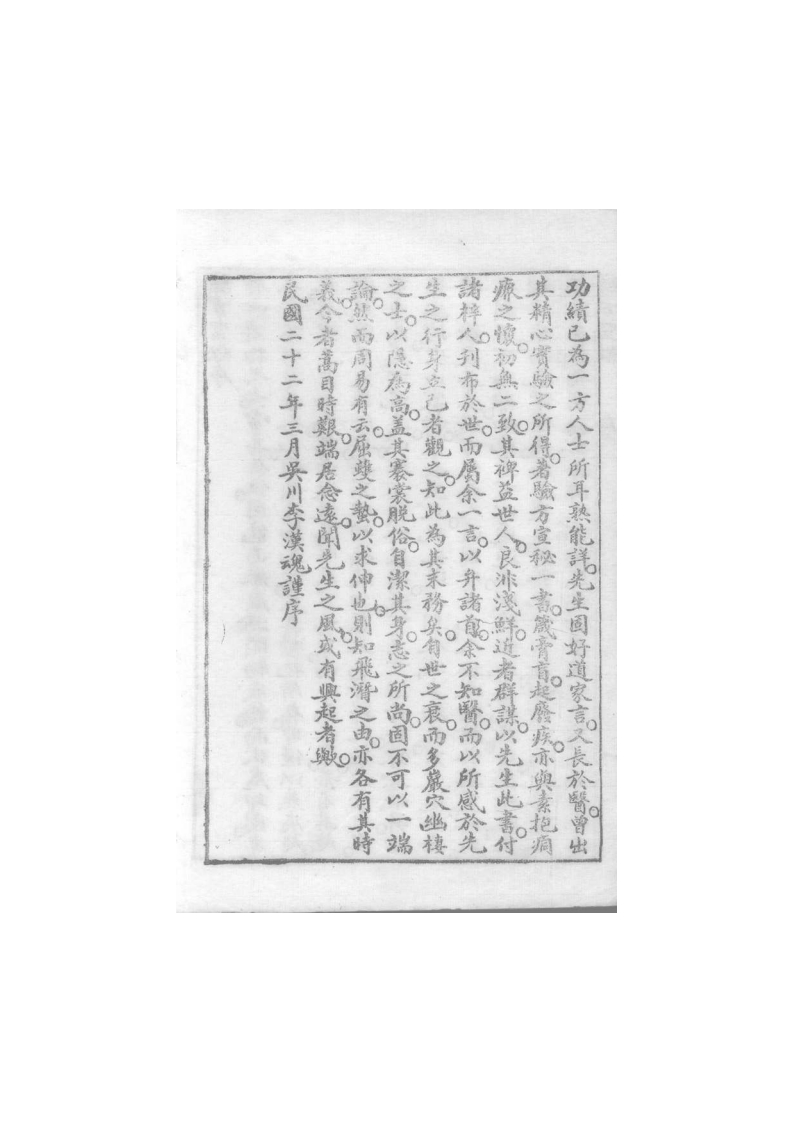 功績已為一方人士所耳熟能詳。先生固好道家言。又長於醫。曾出
其精心實驗之所得。著驗方宣秘一書。箴膏肓。起廢疾。亦與素抱痌
瘝之懷。初無二致。其裨益世人。良非淺鮮。近者群謀以先生此書。付
諸梓人。刊布於世。而屬余一言。以弁諸前。余不知醫。而以所感於先
生之行身立己者觀之。知此為其末務矣。自世之衰。而多巖穴幽棲
之士。以隱為高。盖其褰裳脫俗。自潔其身。志之所尚。固不可以一端
論。然而周易有云。屈蠖之蟄。以求伸也。則知飛潛之由。亦各有其時
義。今者蒿目時艱。端居念遠。聞先生之風。或有興起者歟。
民國二十二年三月吳川李漢魂謹序